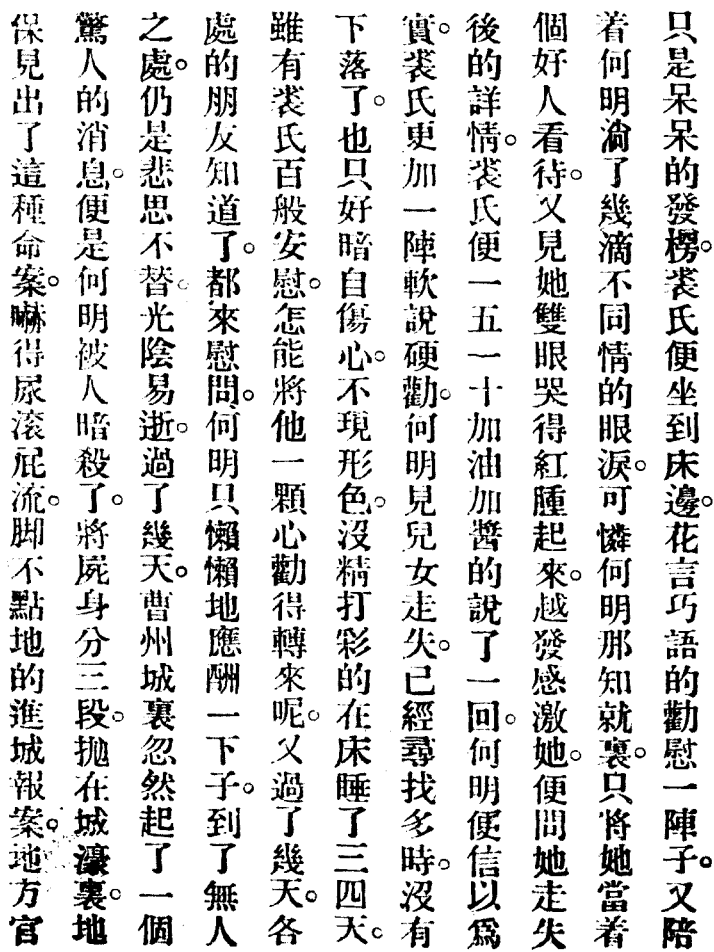 只是呆呆的發楞。裘氏便坐到床邊。花言巧語的勸慰一陣子。又陪
着何明淌了幾滴不同情的眼淚。可憐何明那知就裏。只將她當着
個好人看待。又見她雙眼哭得紅腫起來。越發感激她。便問她走失
後的詳情。裘氏便一五一十加油加醬的說了一回。何明便信以爲
實。裘氏更加一陣軟說硬勸。何明見兒女走失。已經尋找多時。沒有
下落了。也只好暗自傷心。不現形色。沒精打彩的在床睡了三四天。
雖有裘氏百般安慰。怎能將他一顆心勸得轉來呢。又過了幾天。各
處的朋友知道了。都來慰問。何明只懶懶地應酬一下子。到了無人
之處。仍是悲思不替。光陰易逝。過了幾天。曹州城裏忽然起了一個
驚人的消息。便是何明被人暗殺了。將屍身分三段。拋在城濠裏。地
保見出了這種命案。嚇得尿滾屁流。脚不點地的進城報案。地方官